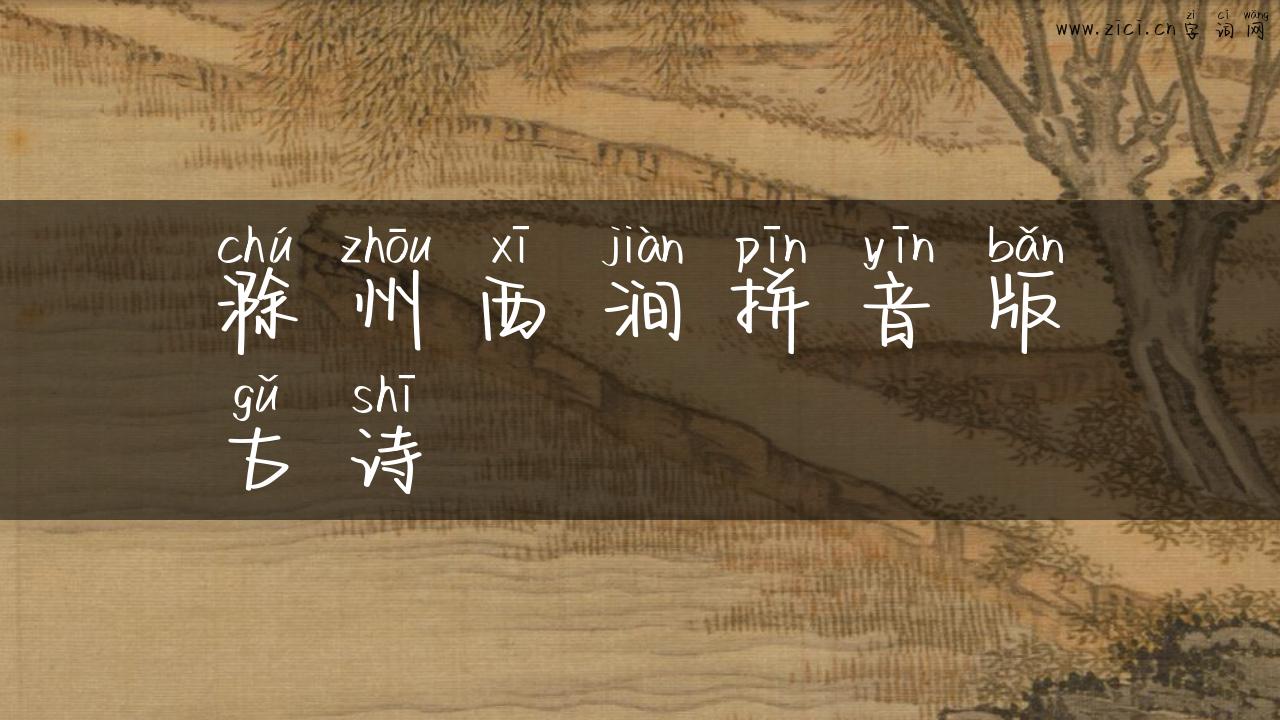 zì cí wǎng
www.zici.cn 字词网
chú zhōu xī jiàn pīn yīn bǎn
滁州西涧拼音版
gǔ shī
古诗